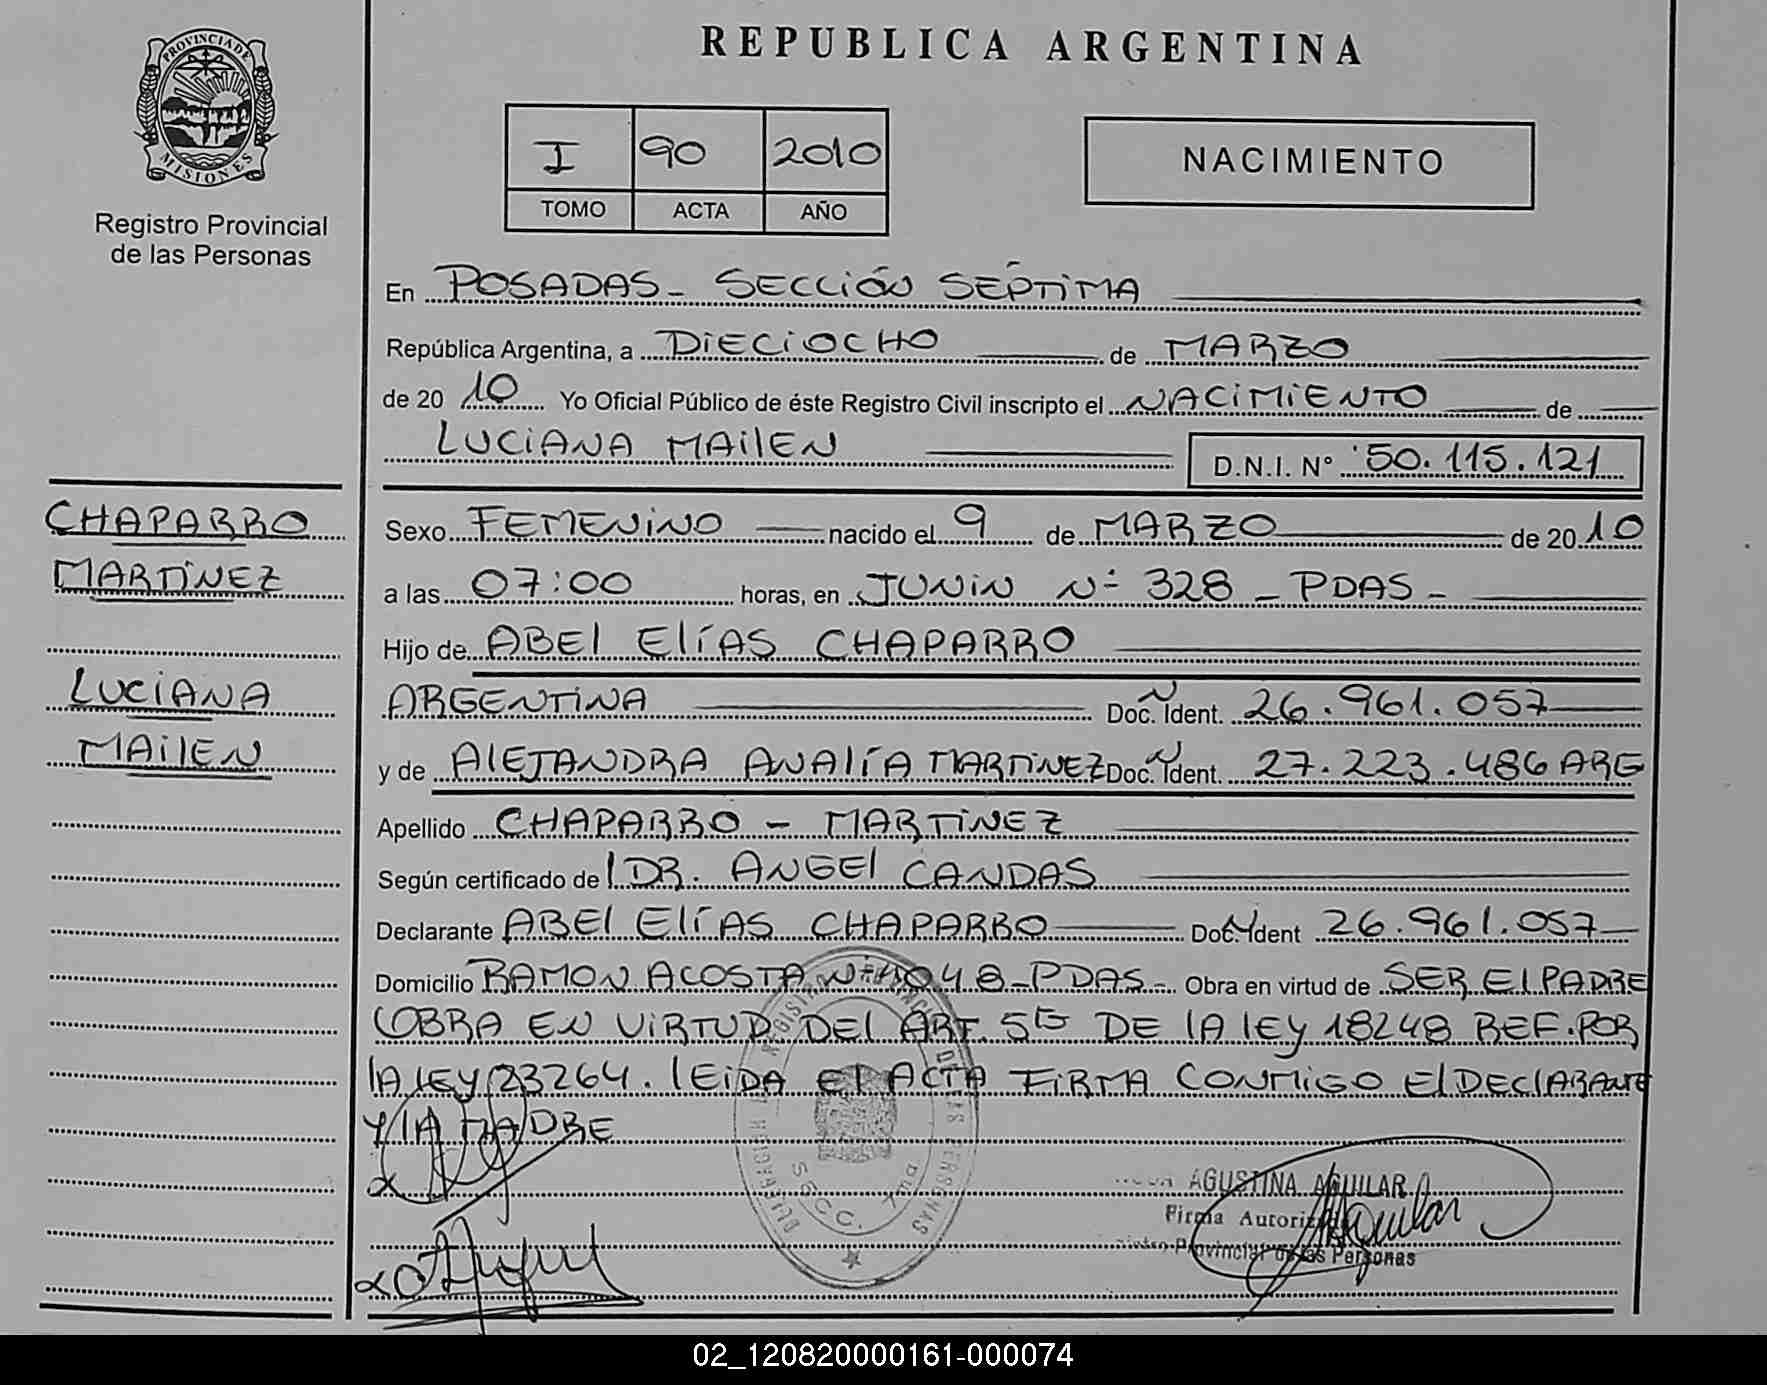 PROVINCIA DE
MISIONES
Registro Provincial
de las Personas
REPUBLICA ARGENTINA
I 90 2010
TOMO ACTA AÑO
NACIMIENTO
En POSADAS - SECCIÓN SÉPTIMA
República Argentina, a DIECIOCHO de MARZO
de 2010 Yo Oficial Público de éste Registro Civil inscripto el NACIMIENTO de
LUCIANA MAILEN D.N.I. N° 50.115.121
CHAPARRO
MARTINEZ
LUCIANA
MAILEN
Sexo FEMENINO nacido el 9 de MARZO de 2010
a las 07:00 horas, en JUNIN N° 328 - PDAS -
Hijo de ABEL ELÍAS CHAPARRO
ARGENTINA Doc. Ident. 26.961.057
y de ALEJANDRA ANALÍA MARTINEZ Doc. Ident. 27.223.486 ARG
Apellido CHAPARRO - MARTINEZ
Según certificado de DR. ANGEL CANDAS
Declarante ABEL ELÍAS CHAPARRO Doc. Ident 26.961.057
Domicilio RAMON ACOSTA N° 4048 - PDAS - Obra en virtud de SER EL PADRE
OBRA EN VIRTUD DEL ART. 5to DE LA LEY 18248 REF. POR
LA LEY 23264. LEIDA EL ACTA FIRMA CONMIGO EL DECLARANTE
Y LA MADRE
SECC. 7ma
AGUSTINA AGUILAR
Firma Autoriz
Provincial de las Personas
02_120820000161-000074